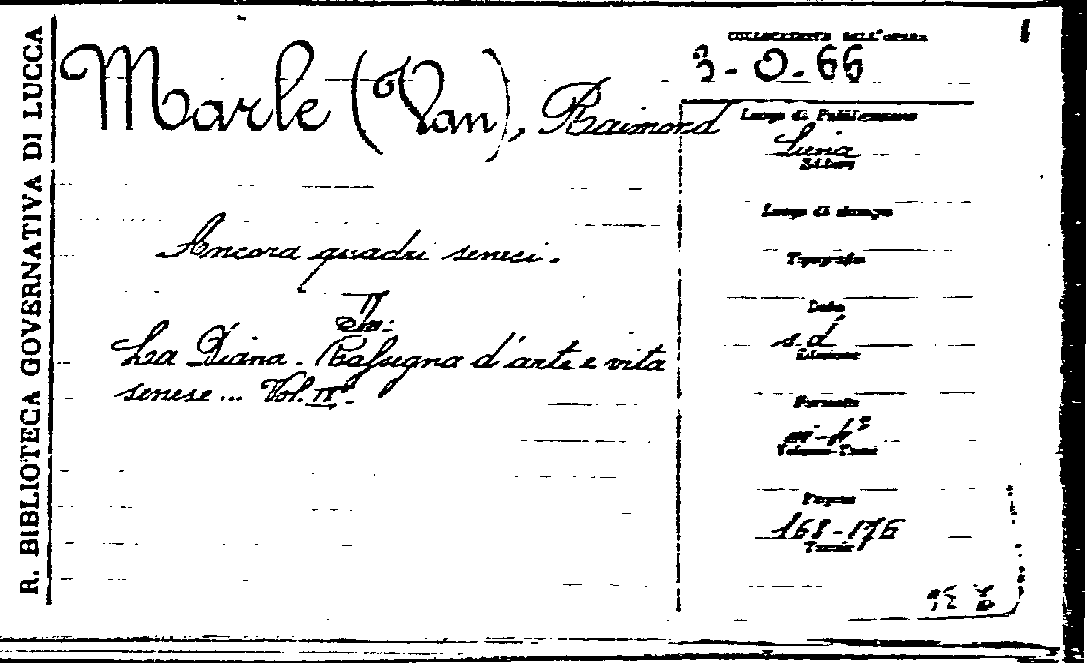 R. BIBLIOTECA GOVERNATIVA DI LUCCA
COLLOCAMENTO DELL'OPERA
3-0.66
Marle (Van), Raimond
Luogo di Pubblicazione
Siena
Editore
Luogo di stampa
Ancora quadri senesi.
Tipografia
In:
Data
s.d
La Diana. Rassegna d'arte e vita
Edizione
senese... Vol. II°.
Formato
in-4°
Volume-Tomi
Pagine
168-176
Tavole